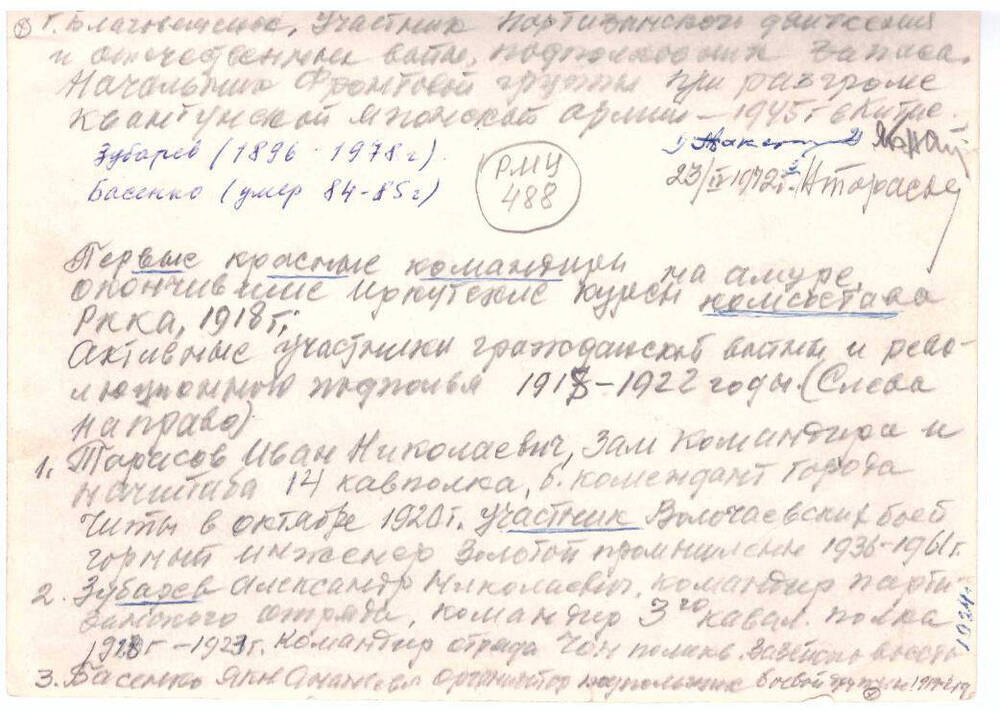 г. Благовещенск, Участник Партизанского движения
и отечественных войн, подполковник запаса.
Начальник Фронтовой группы при разгроме
квантунской японской армии – 1945 г в Китае.
Зубарев (1896 - 1978 г).
Басенко (умер 84-85 г)
РМЦ
488
23/IV 1972 г.
Первые красные командиры на амуре,
окончившие иркутские курсы комсостава
Ркка, 1918 г;
Активные участники гражданской войны и рево-
люционного подполья 1918–1922 годы. (Слева
направо)
1. Тарасов Иван Николаевич, Зам командира и
начштаба 14 кавполка, б. комендант города
Читы в октябре 1920 г. участник Волочаевских боев
горный инженер Золотой промышлен 1936-1961 г.
2. Зубарев Александр Николаевич. командир парти-
занского отряда, командир 3го кавал. полка
командир отряда Чон
1924 г.
3. Басенко организатор подпольщик боевой группы